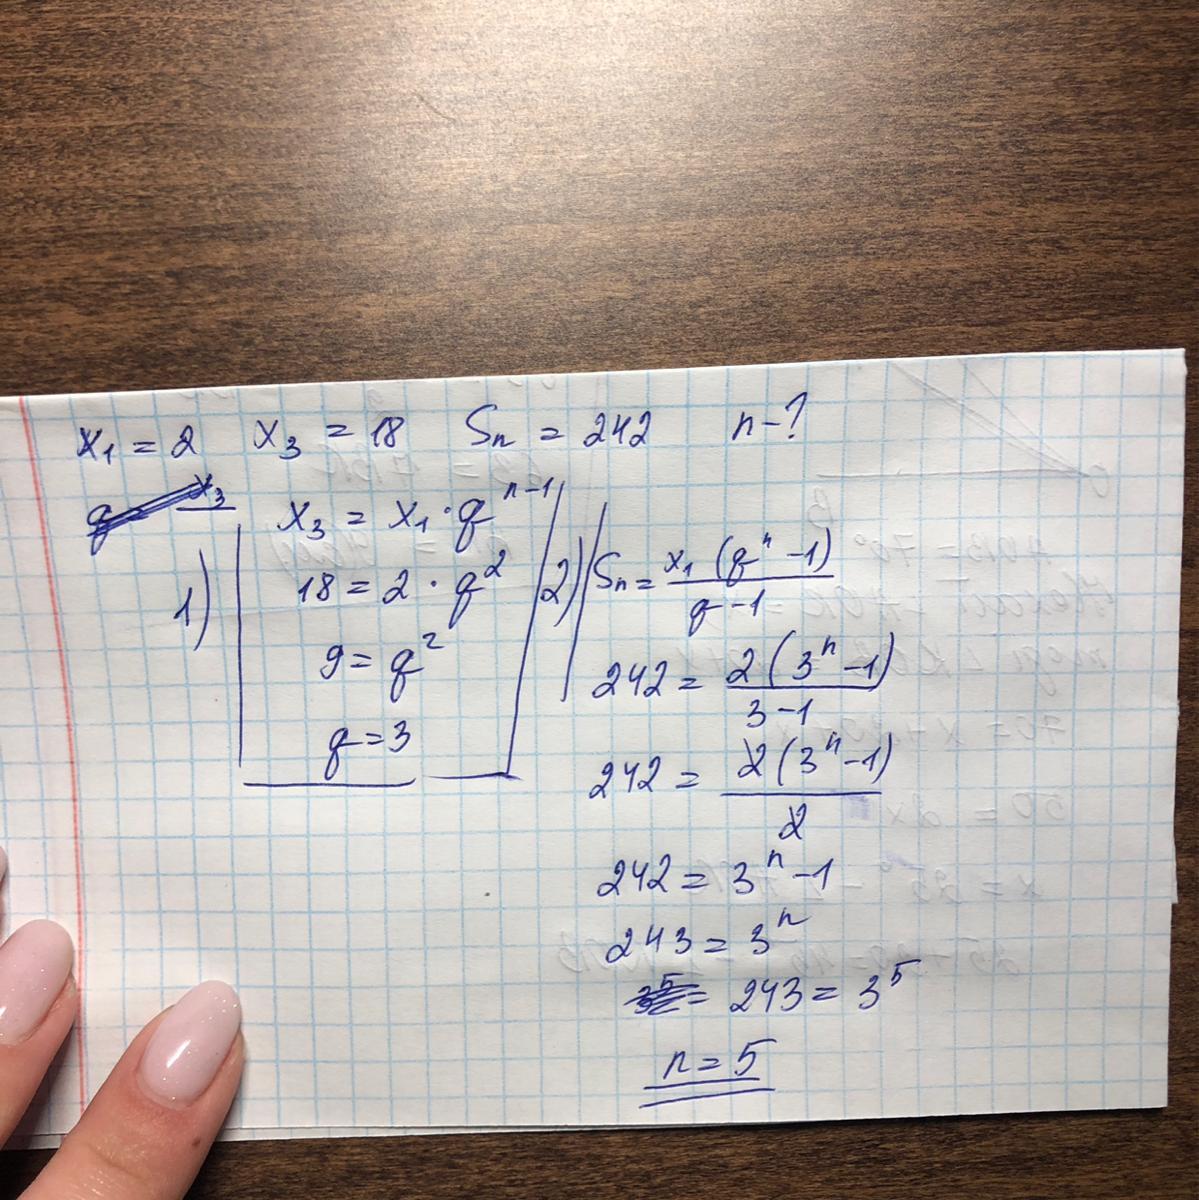 x₁ = 2 x₃ = 18 Sₙ = 242 n - ?
1)
x₃ = x₁ · qⁿ⁻¹
18 = 2 · q²
9 = q²
q = 3
2)
Sₙ = x₁ (qⁿ - 1) / q - 1
242 = 2 (3ⁿ - 1) / 3 - 1
242 = 2 (3ⁿ - 1) / 2
242 = 3ⁿ - 1
243 = 3ⁿ
= 243 = 3⁵
n = 5